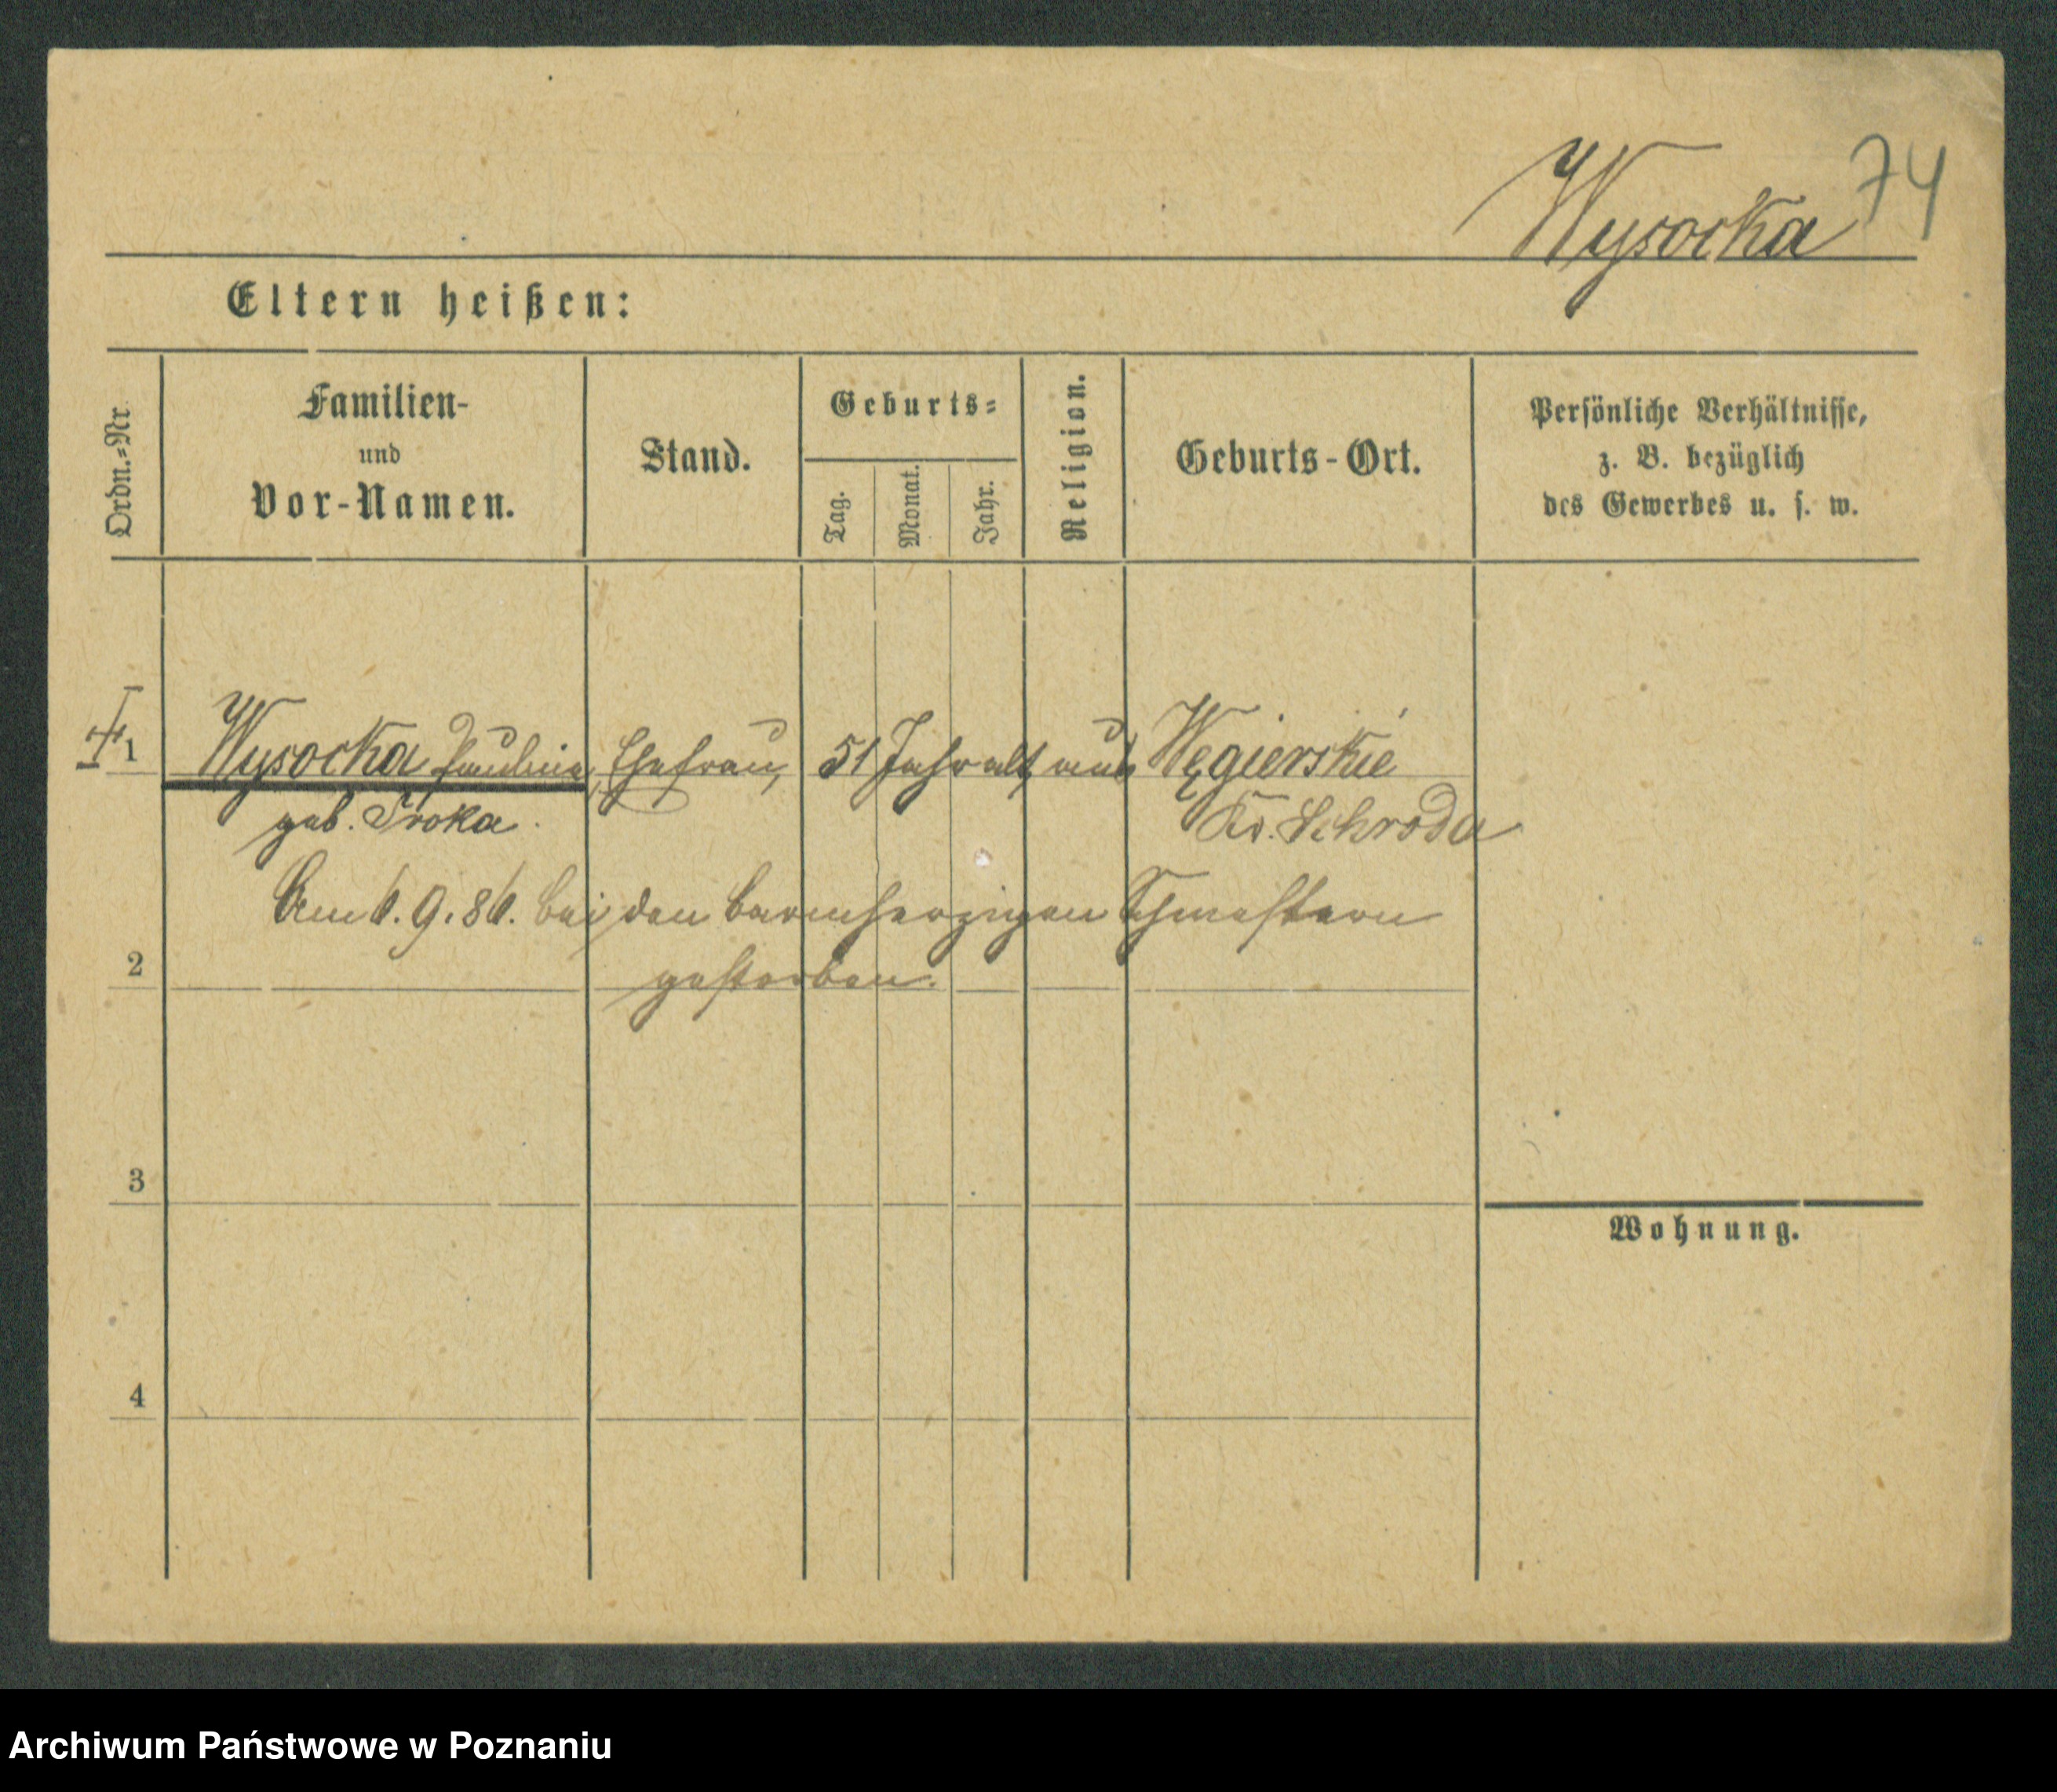 74
Wysocka
Eltern heißen:
Ordn.-Nr.
Familien-
und
Vor-Namen.
Stand.
Geburts-
Tag.
Monat.
Jahr.
Religion.
Geburts-Ort.
Persönliche Verhältnisse,
z. B. bezüglich
des Gewerbes u. s. w.
1 Wysocka Pauline, Ehefrau, 51 Jahr alt, aus Węgierskie
geb. Troka. Kr. Schroda
Am 6.9.86. bei den barmherzigen Schwestern
2 gestorben.
3
Wohnung.
4
Archiwum Państwowe w Poznaniu